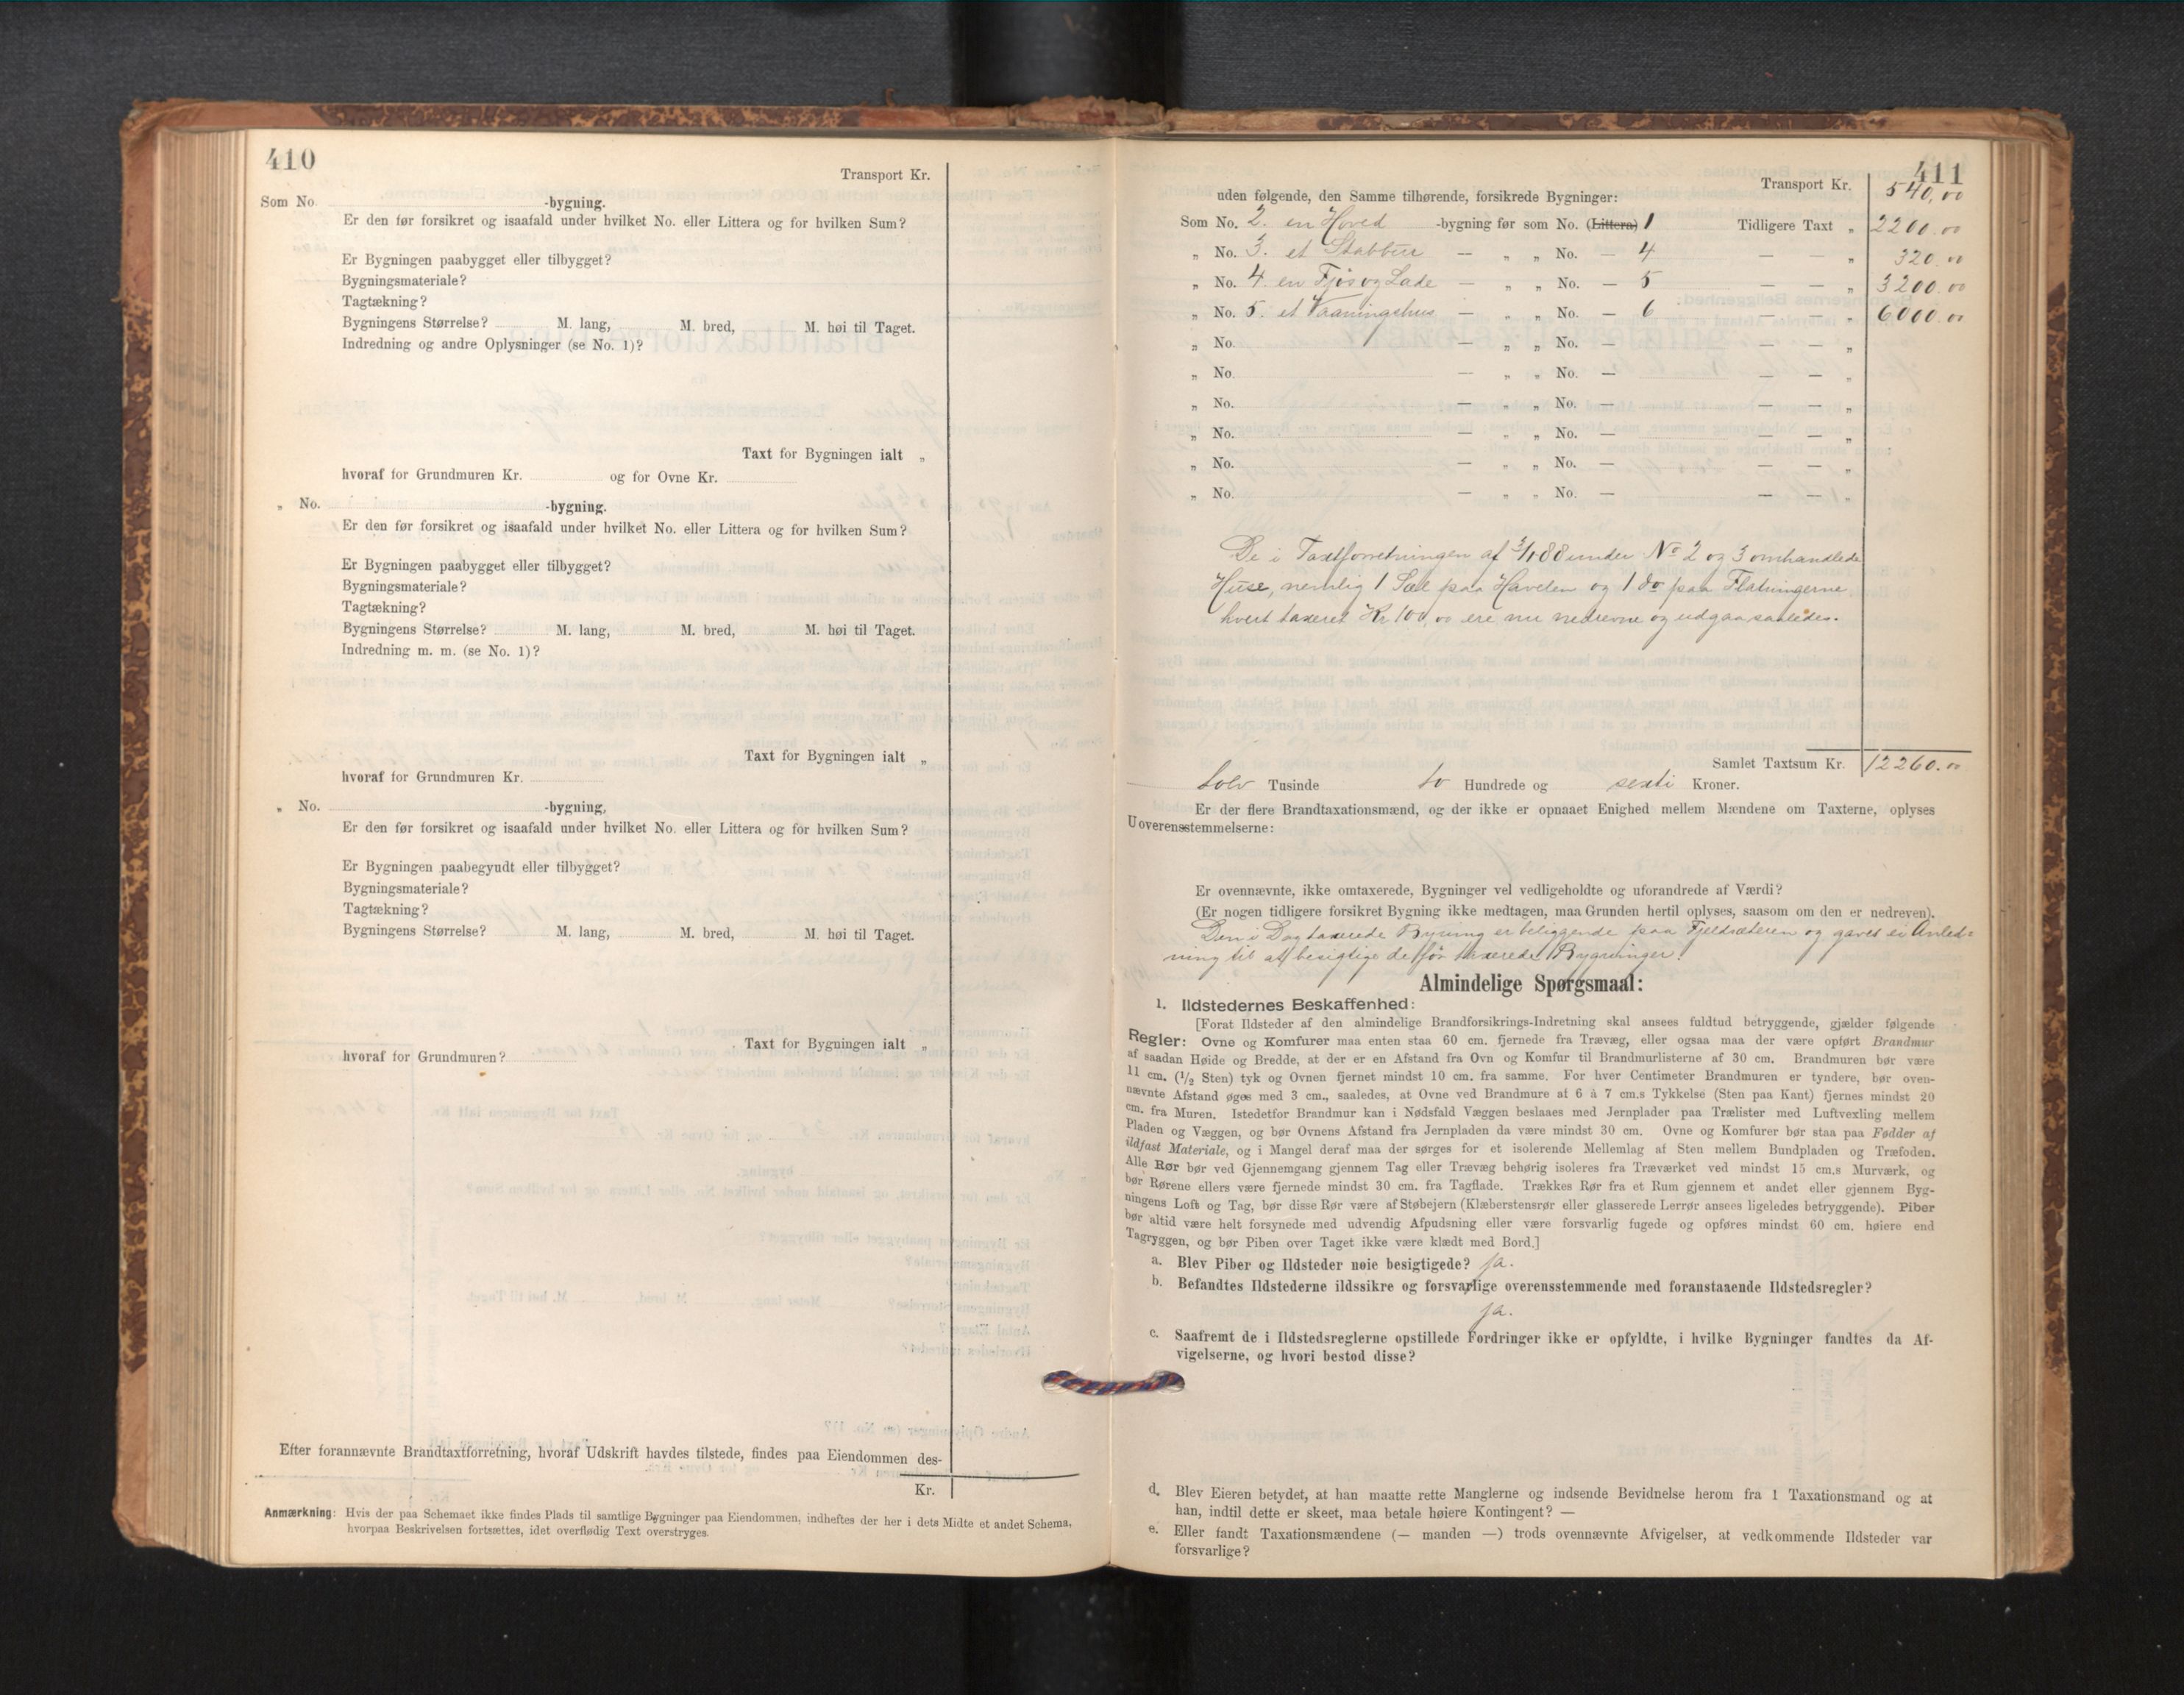 410
Transport Kr.
Som No. -bygning.
Er den før forsikret og isaafald under hvilket No. eller Littera og for hvilken Sum?
Er Bygningen paabygget eller tilbygget?
Bygningsmateriale?
Tagtækning?
Bygningens Størrelse? M. lang, M. bred, M. høi til Taget.
Indredning og andre Oplysninger (se No. 1)?
Taxt for Bygningen ialt „
hvoraf for Grundmuren Kr. og for Ovne Kr.
„ No. -bygning.
Er den før forsikret og isaafald under hvilket No. eller Littera og for hvilken Sum?
Er Bygningen paabygget eller tilbygget?
Bygningsmateriale?
Tagtækning?
Bygningens Størrelse? M. lang, M. bred, M. høi til Taget.
Indredning m. m. (se No. 1)?
Taxt for Bygningen ialt „
hvoraf for Grundmuren Kr.
„ No. -bygning,
Er den før forsikret og isaafald under hvilket No. eller Littera og for hvilken Sum?
Er Bygningen paabegyndt eller tilbygget?
Bygningsmateriale?
Tagtækning?
Bygningens Størrelse? M. lang, M. bred, M. høi til Taget.
Taxt for Bygningen ialt „
hvoraf for Grundmuren?
Efter forannævnte Brandtaxtforretning, hvoraf Udskrift havdes tilstede, findes paa Eiendommen des-
Kr.
Anmærkning: Hvis der paa Schemaet ikke findes Plads til samtlige Bygninger paa Eiendommen, indheftes der her i dets Midte et andet Schema,
hvorpaa Beskrivelsen fortsættes, idet overflødig Text overstryges.
411
Transport Kr. 540,00
uden følgende, den Samme tilhørende, forsikrede Bygninger:
Som No. 2. en Hoved -bygning før som No. (Littera) 1 Tidligere Taxt „ 2200.00
„ No. 3. et Stabbur — „ „ No. — 4 — — „ 320.00
„ No. 4. en Fjøs og Lade — „ „ No. — 5 — — „ 3200.00
„ No. 5. et Vaaningshus — „ „ No. — 6 — — „ 6000.00
„ No. — „ „ No. — — — „
„ No. — „ „ No. — — — „
„ No. — „ „ No. — — — „
„ No. — „ „ No. — — — „
„ No. — „ „ No. — — — „
„ No. — „ „ No. — — — „
De i Taxtforretningen af 88 under No 2 og 3 omhandlede
Huse, nemlig 1 Sæl paa Havelen og 1 do paa Flatningerne
hvert taxeret Kr 100,00 ere nu nedrevne og udgaa saaledes.
Samlet Taxtsum Kr. 12260.00
tolv Tusinde to Hundrede og sexti Kroner.
Er der flere Brandtaxationsmænd, og der ikke er opnaaet Enighed mellem Mændene om Taxterne, oplyses
Uoverensstemmelserne:
Er ovennævnte, ikke omtaxerede, Bygninger vel vedligeholdte og uforandrede af Værdi?
(Er nogen tidligere forsikret Bygning ikke medtagen, maa Grunden hertil oplyses, saasom om den er nedreven).
Den i Dag taxerede Bygning er beliggende paa Fjeldsæteren og gaves ei Anled-
ning til at besigtige de før taxerede Bygninger.
Almindelige Spørgsmaal:
1. Ildstedernes Beskaffenhed:
[Forat Ildsteder af den almindelige Brandforsikrings-Indretning skal ansees fuldtud betryggende, gjælder følgende
Regler: Ovne og Komfurer maa enten staa 60 cm. fjernede fra Trævæg, eller ogsaa maa der være opført Brandmur
af saadan Høide og Bredde, at der er en Afstand fra Ovn og Komfur til Brandmurlisterne af 30 cm. Brandmuren bør være
11 cm. (1/2 Sten) tyk og Ovnen fjernet mindst 10 cm. fra samme. For hver Centimeter Brandmuren er tyndere, bør oven-
nævnte Afstand øges med 3 cm., saaledes, at Ovne ved Brandmure af 6 à 7 cm.s Tykkelse (Sten paa Kant) fjernes mindst 20
cm. fra Muren. Istedetfor Brandmur kan i Nødsfald Væggen beslaaes med Jernplader paa Trælister med Luftvexling mellem
Pladen og Væggen, og bør Ovnens Afstand fra Jernpladen da være mindst 30 cm. Ovne og Komfurer bør staa paa Fødder af
ildfast Materiale, og i Mangel deraf maa der sørges for et isolerende Mellemlag af Sten mellem Bundpladen og Træfoden.
Alle Rør bør ved Gjennemgang gjennem Tag eller Trævæg behørig isoleres fra Træværket ved mindst 15 cm.s Murværk, og
bør Rørene ellers være fjernede mindst 30 cm. fra Tagflade. Trækkes Rør fra et Rum gjennem et andet eller gjennem Byg-
ningens Loft og Tag, bør disse Rør være af Støbejern (Klæberstensrør eller glasserede Lerrør ansees ligeledes betryggende). Piber
bør altid være helt forsynede med udvendig Afpudsning eller være forsvarlig fugede og opføres mindst 60 cm. høiere end
Tagryggen, og bør Piben over Taget ikke være klædt med Bord.]
a. Blev Piber og Ildsteder nøie besigtigede? ja.
b. Befandtes Ildstederne ildssikre og forsvarlige overensstemmende med foranstaaende Ildstedsregler?
ja.
c. Saafremt de i Ildstedsreglerne opstillede Fordringer ikke er opfyldte, i hvilke Bygninger fandtes da Af-
vigelserne, og hvori bestod disse?
d. Blev Eieren betydet, at han maatte rette Manglerne og indsende Bevidnelse herom fra 1 Taxationsmand og at
han, indtil dette er skeet, maa betale høiere Kontingent? —
e. Eller fandt Taxationsmændene (— manden —) trods ovennævnte Afvigelser, at vedkommende Ildsteder var
forsvarlige?